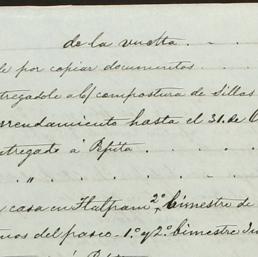 de la vuelta
de por copiar documentos
tregadole a c/ compostura de Sillas
rrendamiento hasta el 31 de
ntregado a Pepita
"
casa en Tlalpam 2º bimestre de
del paseo 1º y 2º bimestre